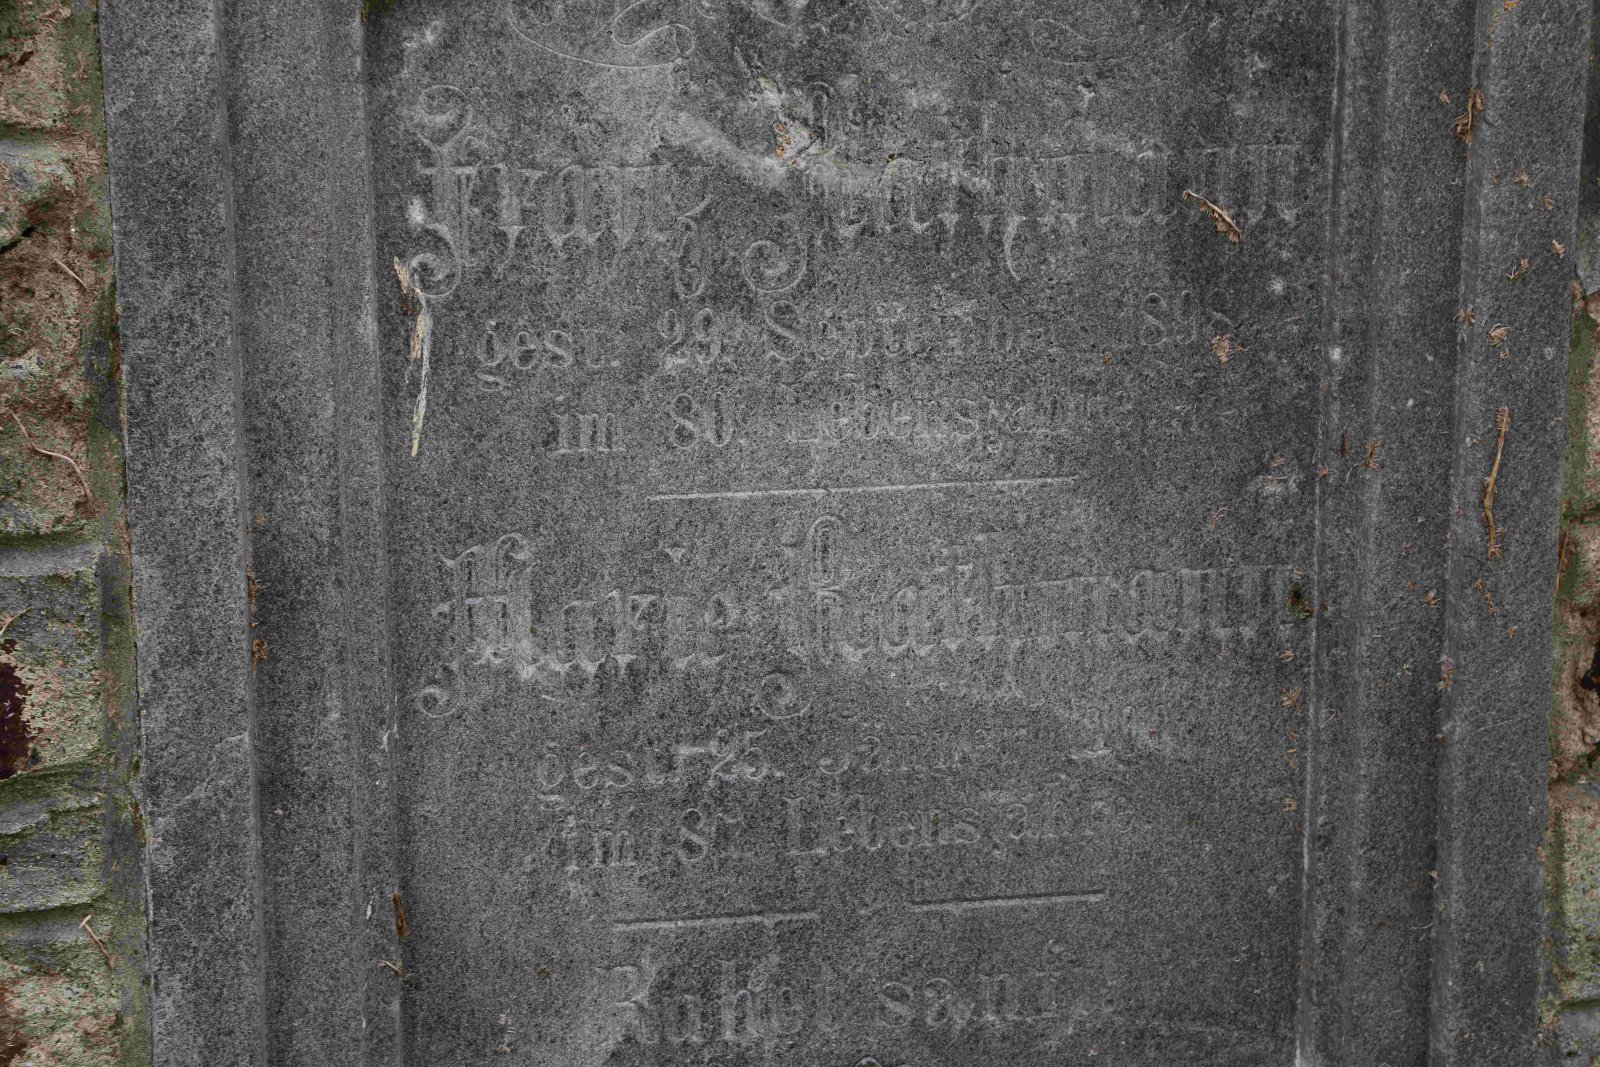 Franz Rathmann
gest. 29. September 1898
im 80. Lebensjahre
Marie Rathmann
gest. 25. Januar
im Lebensjahre.
Ruhet sanft